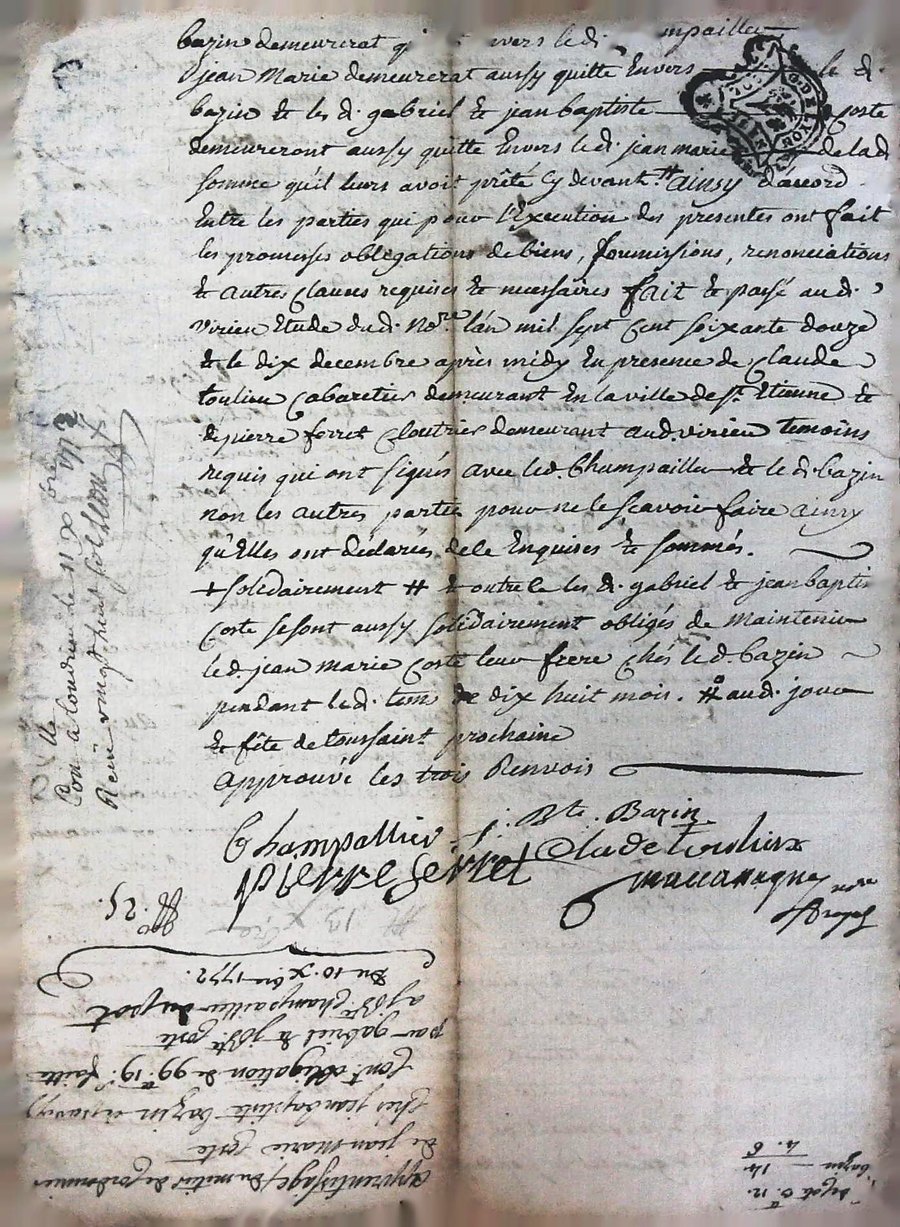 bazin demeurerat vers le d.
jean Marie demeurerat aussy quitte Envers le d.
bazin & les d. gabriel & jean baptiste Coste
demeureront aussy quitte Envers le d. jean marie de lad
somme qu'il leurs avoit prêté Cy devant # ainsy d'accord
Entre les parties qui pour l'Execution des presentes ont fait
les promesses obligations de biens, soumissions, renonciations
& autres Clauses requises & necessaires fait & passé aud.
virieu Etude dud. Nore. lan mil sept Cent soixante douze
& le dix decembre après midy En presence de Claude
toulieu Cabaretier demeurant En la ville de St. Etienne &
de pierre ferret Cloutrier demeurant aud. virieu temoins
requis qui ont signés avec led. Champailler & le d. bazin
non les autres partie pour ne le scavoir faire ainsy
qu'Elles ont déclarés de ce Enquises & sommés.
+ solidairement # & outre ce les d. gabriel & jean baptis
Coste se sont aussy solidairement obligés de maintenir
led. jean marie Coste leur frere Chés led. bazin
pendant led. tems de dix huit mois. # aud. jour
& fête de toussaint prochaine
approuvé les trois Renvois
Champallier j: Bte. Bazin
pierre ferret Clade toulieux
nore
Con. a Condrieu le 11 Xbre 1772
Reçu vingt huit sols
apprentissage du métier de Cordonnier
de jean Marie Coste
Chés jean baptiste bazin
Cont. obligation de 99. 19. faitte
par gabriel & j. Bte Coste
a j. Bte Champailler
Du 10. Xbre 1772.
25.
bazin 14
4. 6